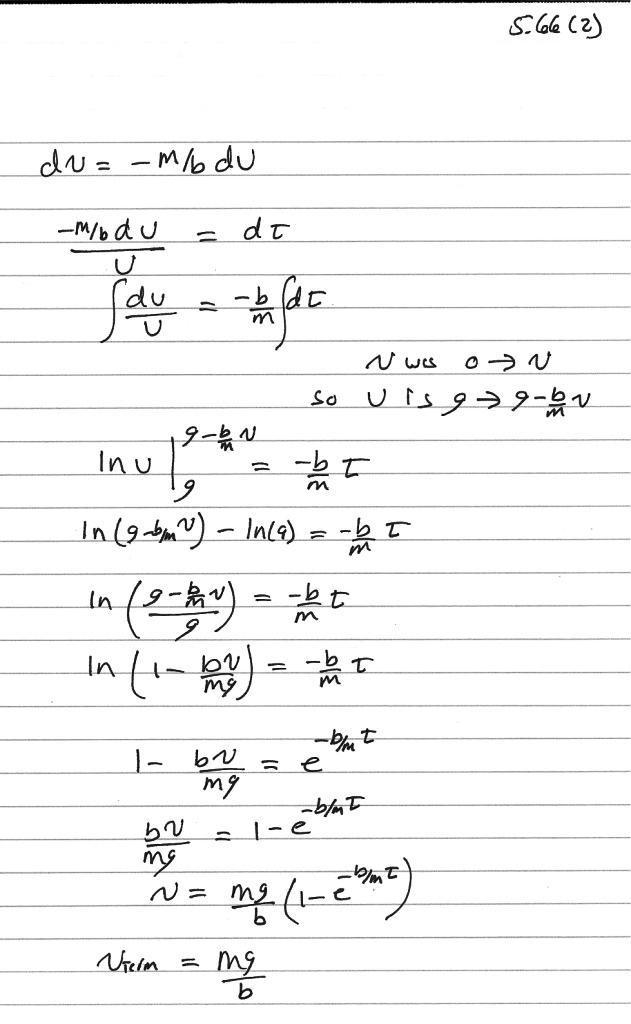 5.66 (2)
dv = -m/b dU
-m/b dU / U = dt
∫ du/U = -b/m ∫ dt
v was 0 → v
so U is g → g - b/m v
ln U |_g^{g - b/m v} = -b/m t
ln(g - b/m v) - ln(g) = -b/m t
ln ( (g - b/m v) / g ) = -b/m t
ln ( 1 - bv/mg ) = -b/m t
1 - bv/mg = e^{-b/m t}
bv/mg = 1 - e^{-b/m t}
v = mg/b ( 1 - e^{-b/m t} )
v_Term = mg/b